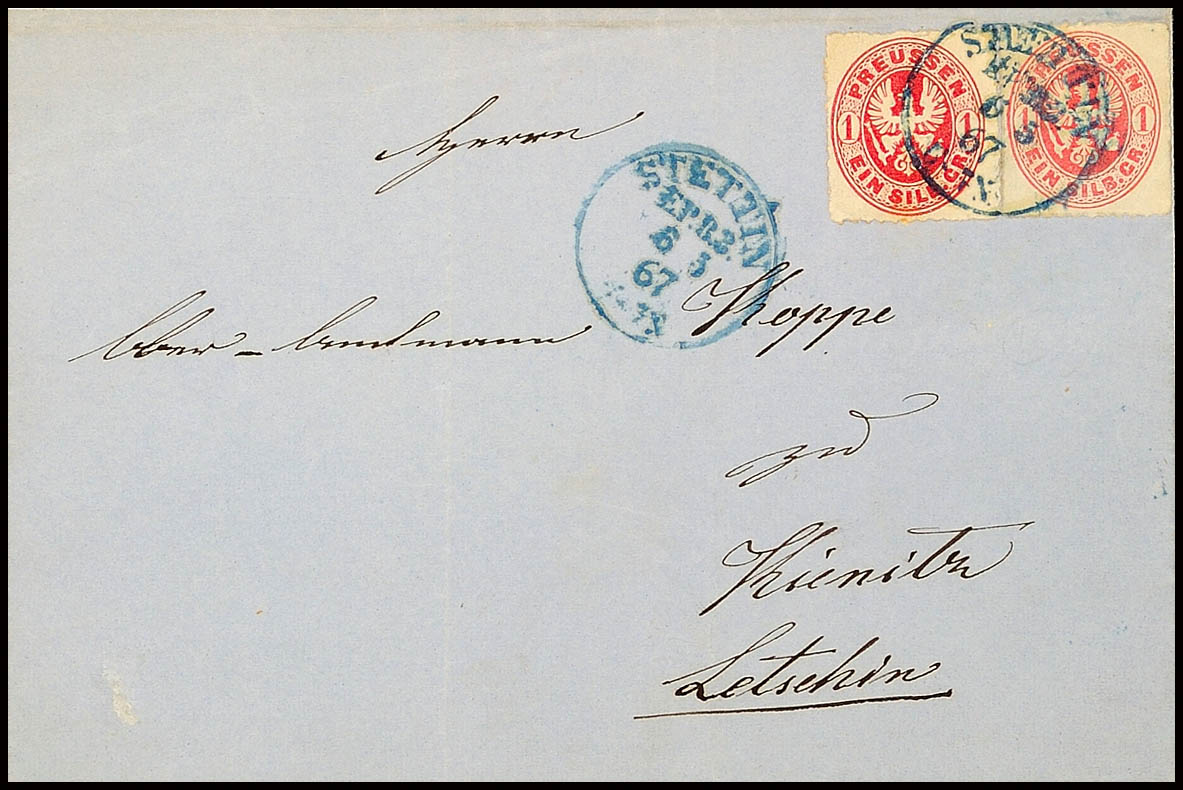 PREUSSEN
1 1
EIN SILB.GR.
PREUSSEN
1 1
EIN SILB.GR.
STETTIN
STETTIN
EXP.R.3.
6 3
67
Herrn
Ober-Amtmann Koppe
zu
Kienitz
Letschin